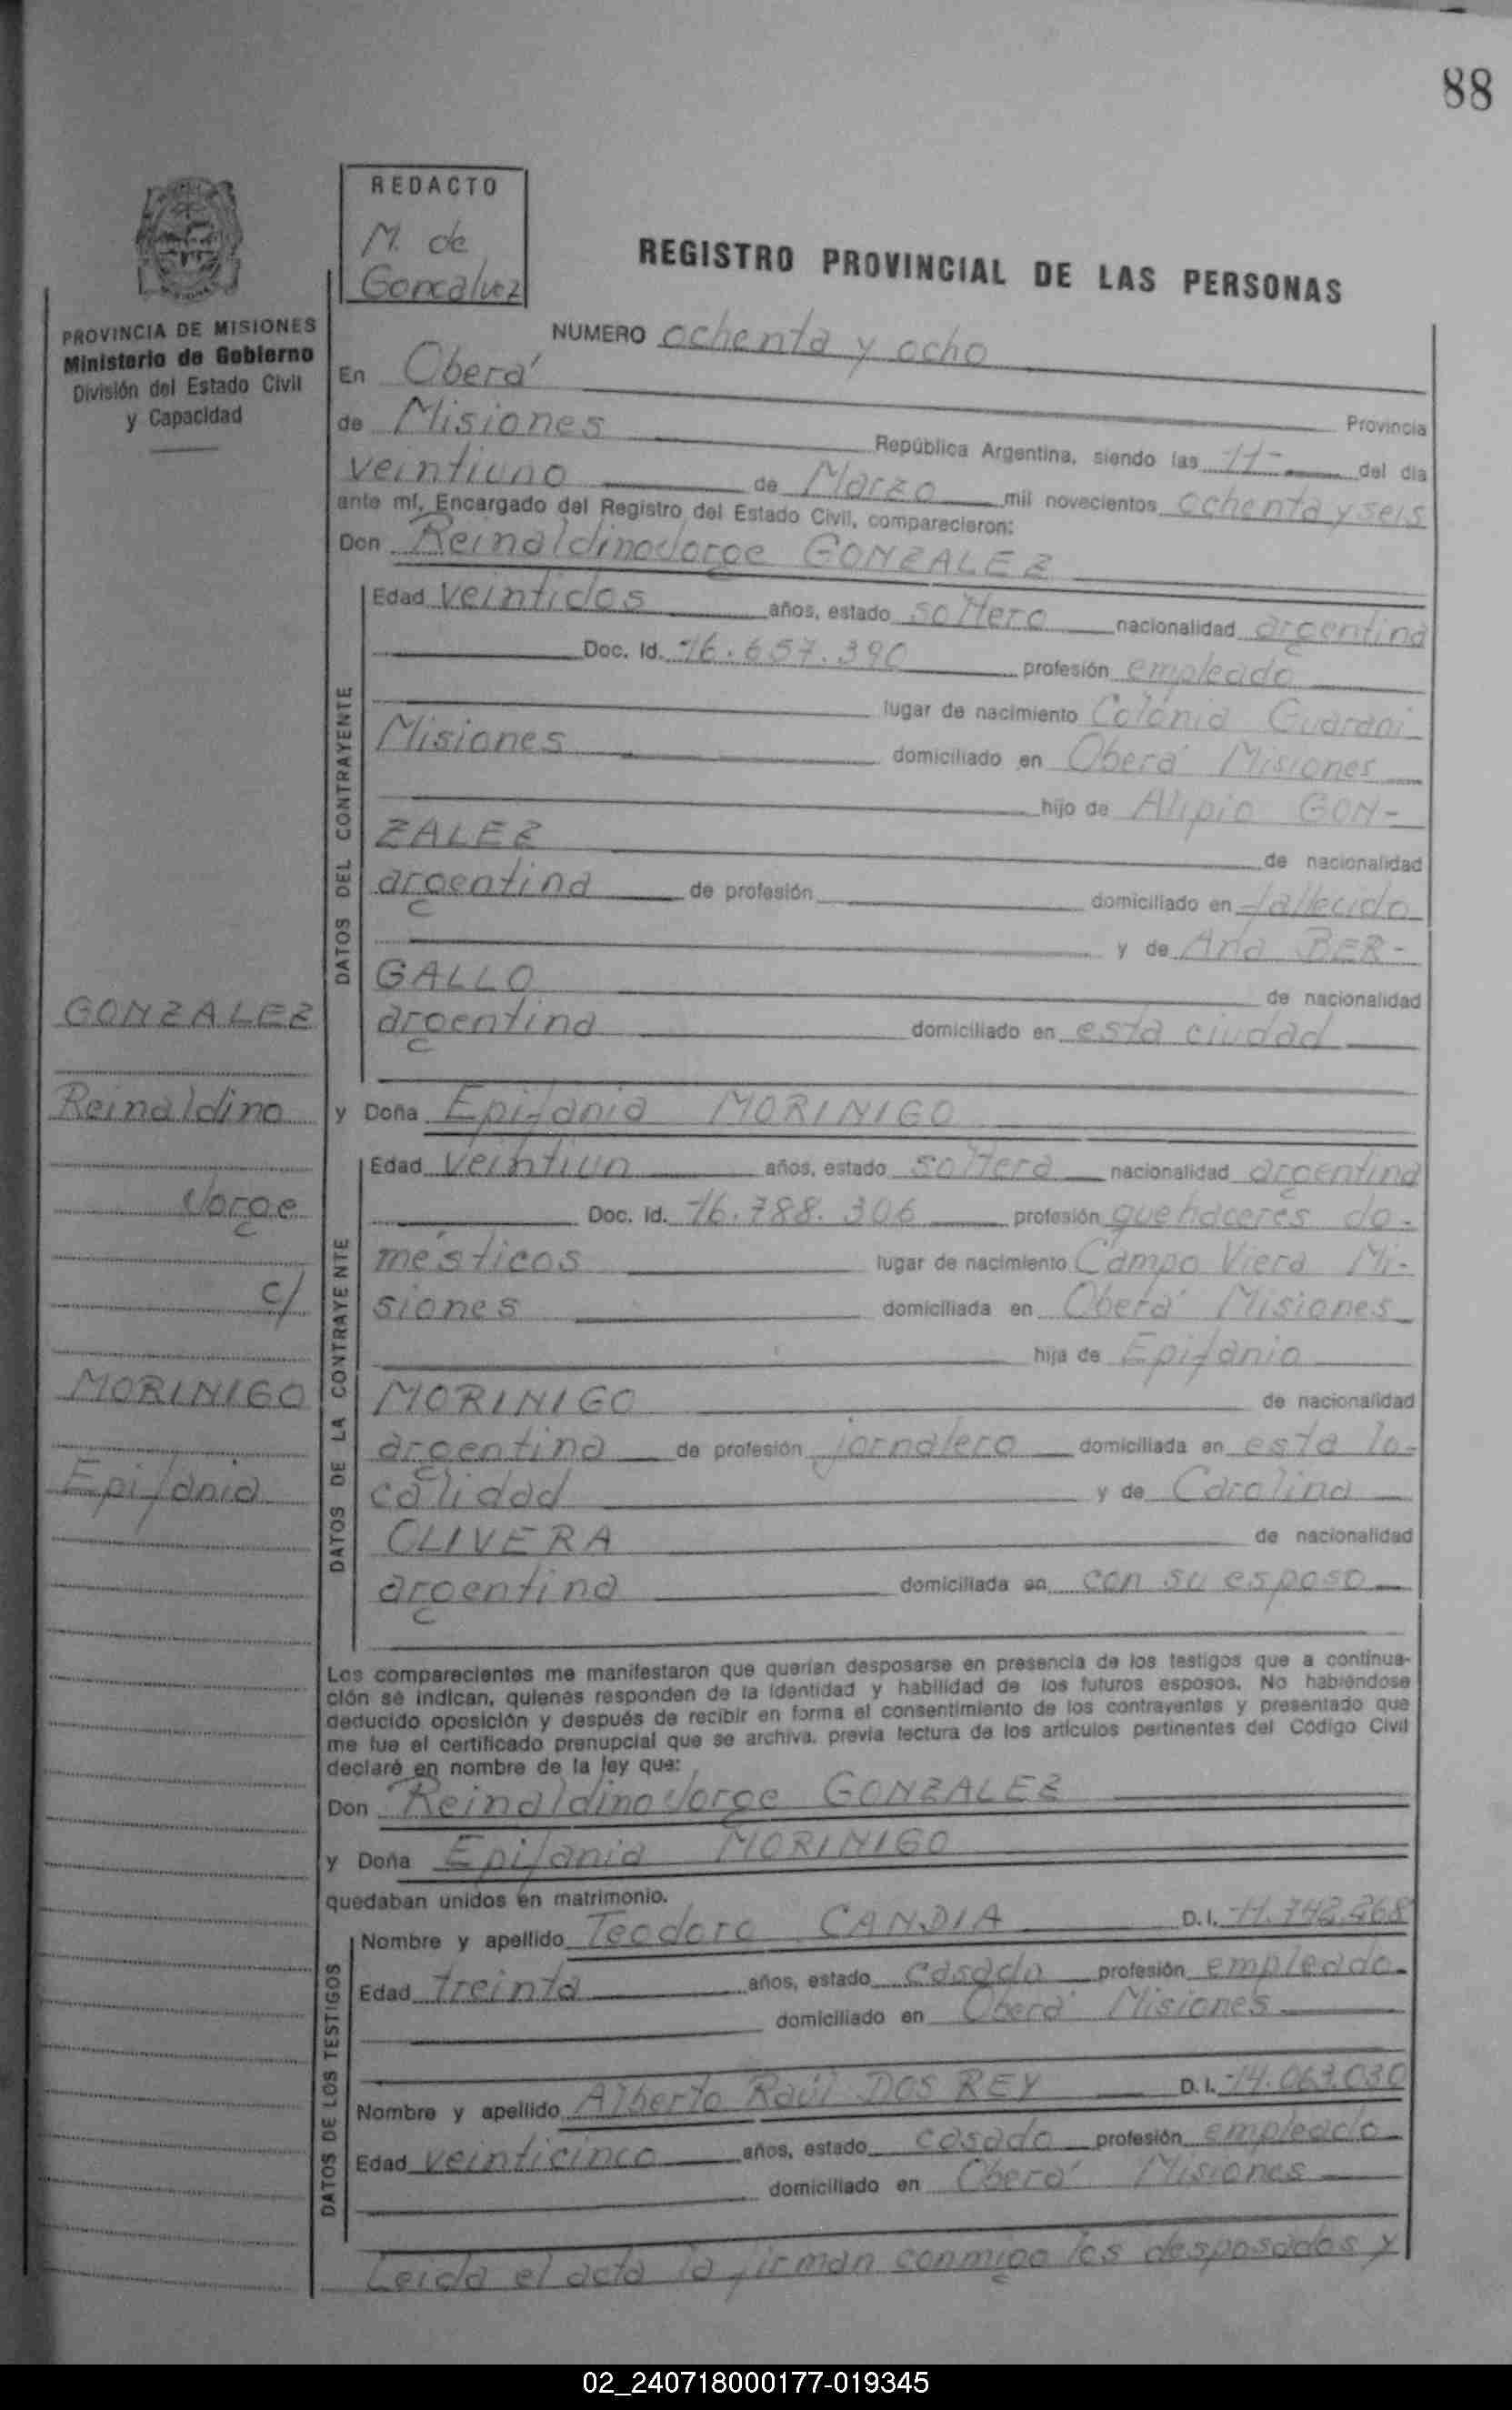 88
REDACTO
M. de
Goncalvez
REGISTRO PROVINCIAL DE LAS PERSONAS
PROVINCIA DE MISIONES
Ministerio de Gobierno
División del Estado Civil
y Capacidad
NUMERO ochenta y ocho
En Oberá Provincia
de Misiones República Argentina, siendo las 11- del día
veintiuno de Marzo mil novecientos ochenta y seis
ante mí, Encargado del Registro del Estado Civil, comparecieron:
Don Reinaldino Jorge GONZALEZ
DATOS DEL CONTRAYENTE
Edad veintidos años, estado soltero nacionalidad argentina
Doc. Id. 16.657.390 profesión empleado
lugar de nacimiento Colonia Guarani
Misiones domiciliado en Oberá Misiones
hijo de Alipio GON-
ZALEZ de nacionalidad
argentina de profesión domiciliado en fallecido
y de Ana BER-
GALLO de nacionalidad
argentina domiciliado en esta ciudad
GONZALEZ
Reinaldino
Jorge
c/
MORINIGO
Epifania
y Doña Epifania MORINIGO
DATOS DE LA CONTRAYENTE
Edad veintiun años, estado soltera nacionalidad argentina
Doc. Id. 16.788.306 profesión quehaceres do-
mésticos lugar de nacimiento Campo Viera Mi-
siones domiciliada en Oberá Misiones
hija de Epifanio
MORINIGO de nacionalidad
argentina de profesión jornalero domiciliada en esta lo-
calidad y de Carolina
OLIVERA de nacionalidad
argentina domiciliada en con su esposo
Los comparecientes me manifestaron que querían desposarse en presencia de los testigos que a continua-
ción se indican, quienes responden de la identidad y habilidad de los futuros esposos. No habiéndose
deducido oposición y después de recibir en forma el consentimiento de los contrayentes y presentado que
me fue el certificado prenupcial que se archiva, previa lectura de los artículos pertinentes del Código Civil
declaré en nombre de la ley que:
Don Reinaldino Jorge GONZALEZ
y Doña Epifania MORINIGO
quedaban unidos en matrimonio.
DATOS DE LOS TESTIGOS
Nombre y apellido Teodoro CANDIA D.I. 11.742.268
Edad treinta años, estado casado profesión empleado
domiciliado en Oberá Misiones
Nombre y apellido Alberto Raúl DOS REY D.I. 14.063.030
Edad veinticinco años, estado casado profesión empleado
domiciliado en Oberá Misiones
Leida el acta la firman conmigo los desposados y
02_240718000177-019345